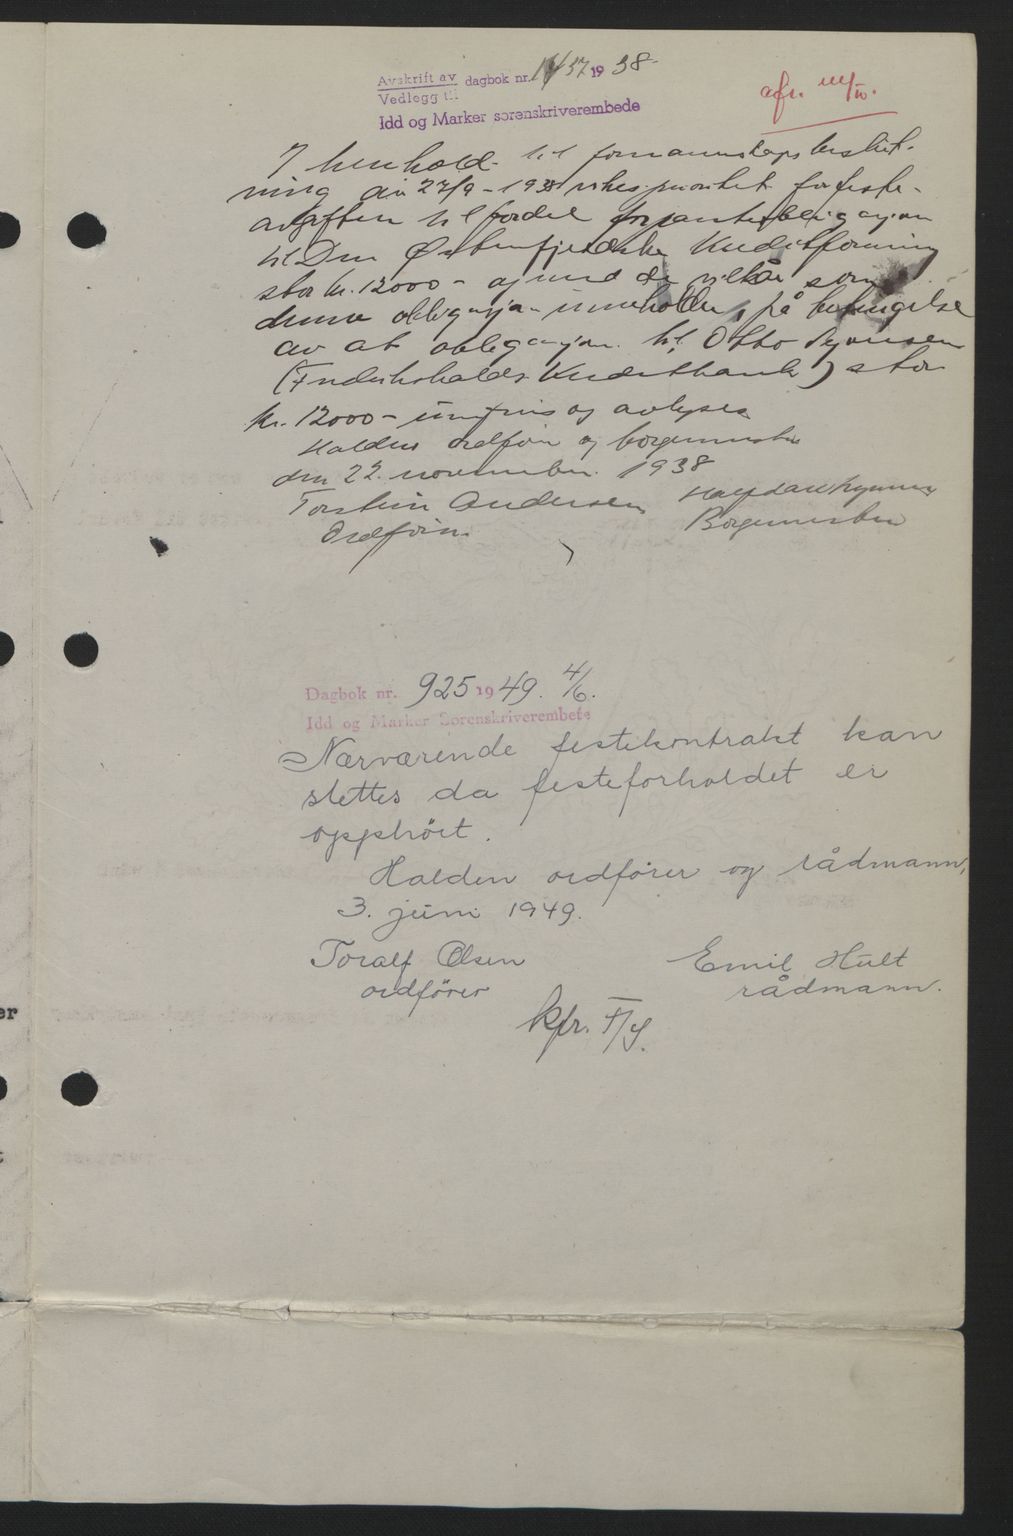 Avskrift av dagbok nr. 1437 1938
Vedlegg til
Idd og Marker sorenskriverembede
afr.
I henhold til formannskapsbeslut-
ning av 27/9 - 1938 vikes prioritet for feste-
avgiften til fordel for panteobligasjon
til Den Østenfjeldske Kreditforening
stor kr. 12000 - og med de vilkår som
denne obligasjon inneholder, på betingelse
av at obligasjon til Otto
(Fredrikshalds Kreditbank) stor
kr. 12000 - innfris og avlyses
Haldens ordfører og borgermester
den 22. november 1938
Torstein Andersen
Ordfører Borgermester
Dagbok nr. 925 1949. 4/6.
Idd og Marker Sorenskriverembete
Nærværende festekontrakt kan
slettes da festeforholdet er
opphört.
Halden ordfører og rådmann,
3. juni 1949.
Toralf Olsen Emil Hult
ordfører rådmann.
kfr.
er